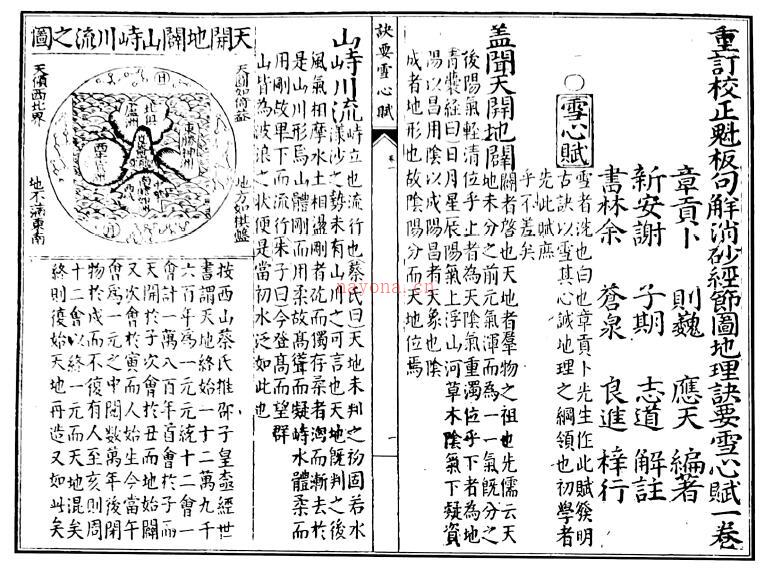 重訂校正魁板句解消砂經節圖地理訣要雪心賦一卷
章貢卜 則巍 應天 編著
新安謝 子期 志道 解註
書林余 蒼泉 良進 梓行
○雪心賦
雪者洗也白也章貢卜先生作此賦發明
古訣以雪其心誠地理之綱領也初學者
先此賦庶
乎不差矣
蓋聞天開地闢
闢者啓也天地者羣物之祖也先儒云天
地未分之前元氣渾而為一一氣旣分之
後陽氣輕清位乎上者為天陰氣重濁位乎下者為地
青囊經曰日月星辰陽氣上浮山河草木陰氣下凝資
陽以昌用陰以成陽昌者天象也陰
成者地形也故陰陽分而天地位焉
訣要雪心賦
卷一
一
山峙川流
峙立也流行也蔡氏曰天地未判之初固若水
漾沙之勢未有山川之可言也天地旣判之後
風氣相摩水土相盪剛者屹而獨存柔者淘而漸去於
是山川形焉山體剛而用柔故高聳而凝峙水體柔而
用剛故畢下而流行朱子曰今登高而望群
山皆為波浪之狀便是當初水泛如此也
天開地闢山峙川流之圖
天圓如倚蓋
地方如棋盤
天傾西北界
地不滿東南
東勝神州
日
月
按西山蔡氏推邵子皇極經世
書謂天地終始一十二萬九千
六百年為一元元統十二會一
會計一萬八百年首會於子而
天開於子次會於丑而地始闢
又次會於寅而人始生今當午
會為一元之中閱數萬年後閉
物於戍而不復有人至亥則周
十二會以終一元而天地混矣
終則復始天地再造又如此矣
nayona.cn